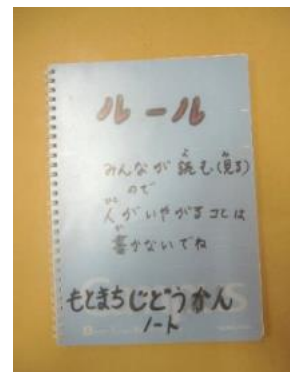 ルール
みんなが 読む(見る)
ので
人がいやがるコトは
書かないでね
Campus
もとまちじどうかん
ノート